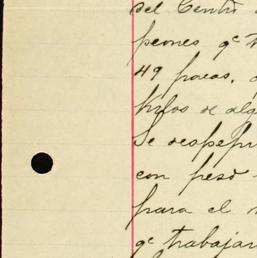 del Centr
peones qe
49 pacas,
kilos de alg
Se despep
con peso
para el
qe trabajar